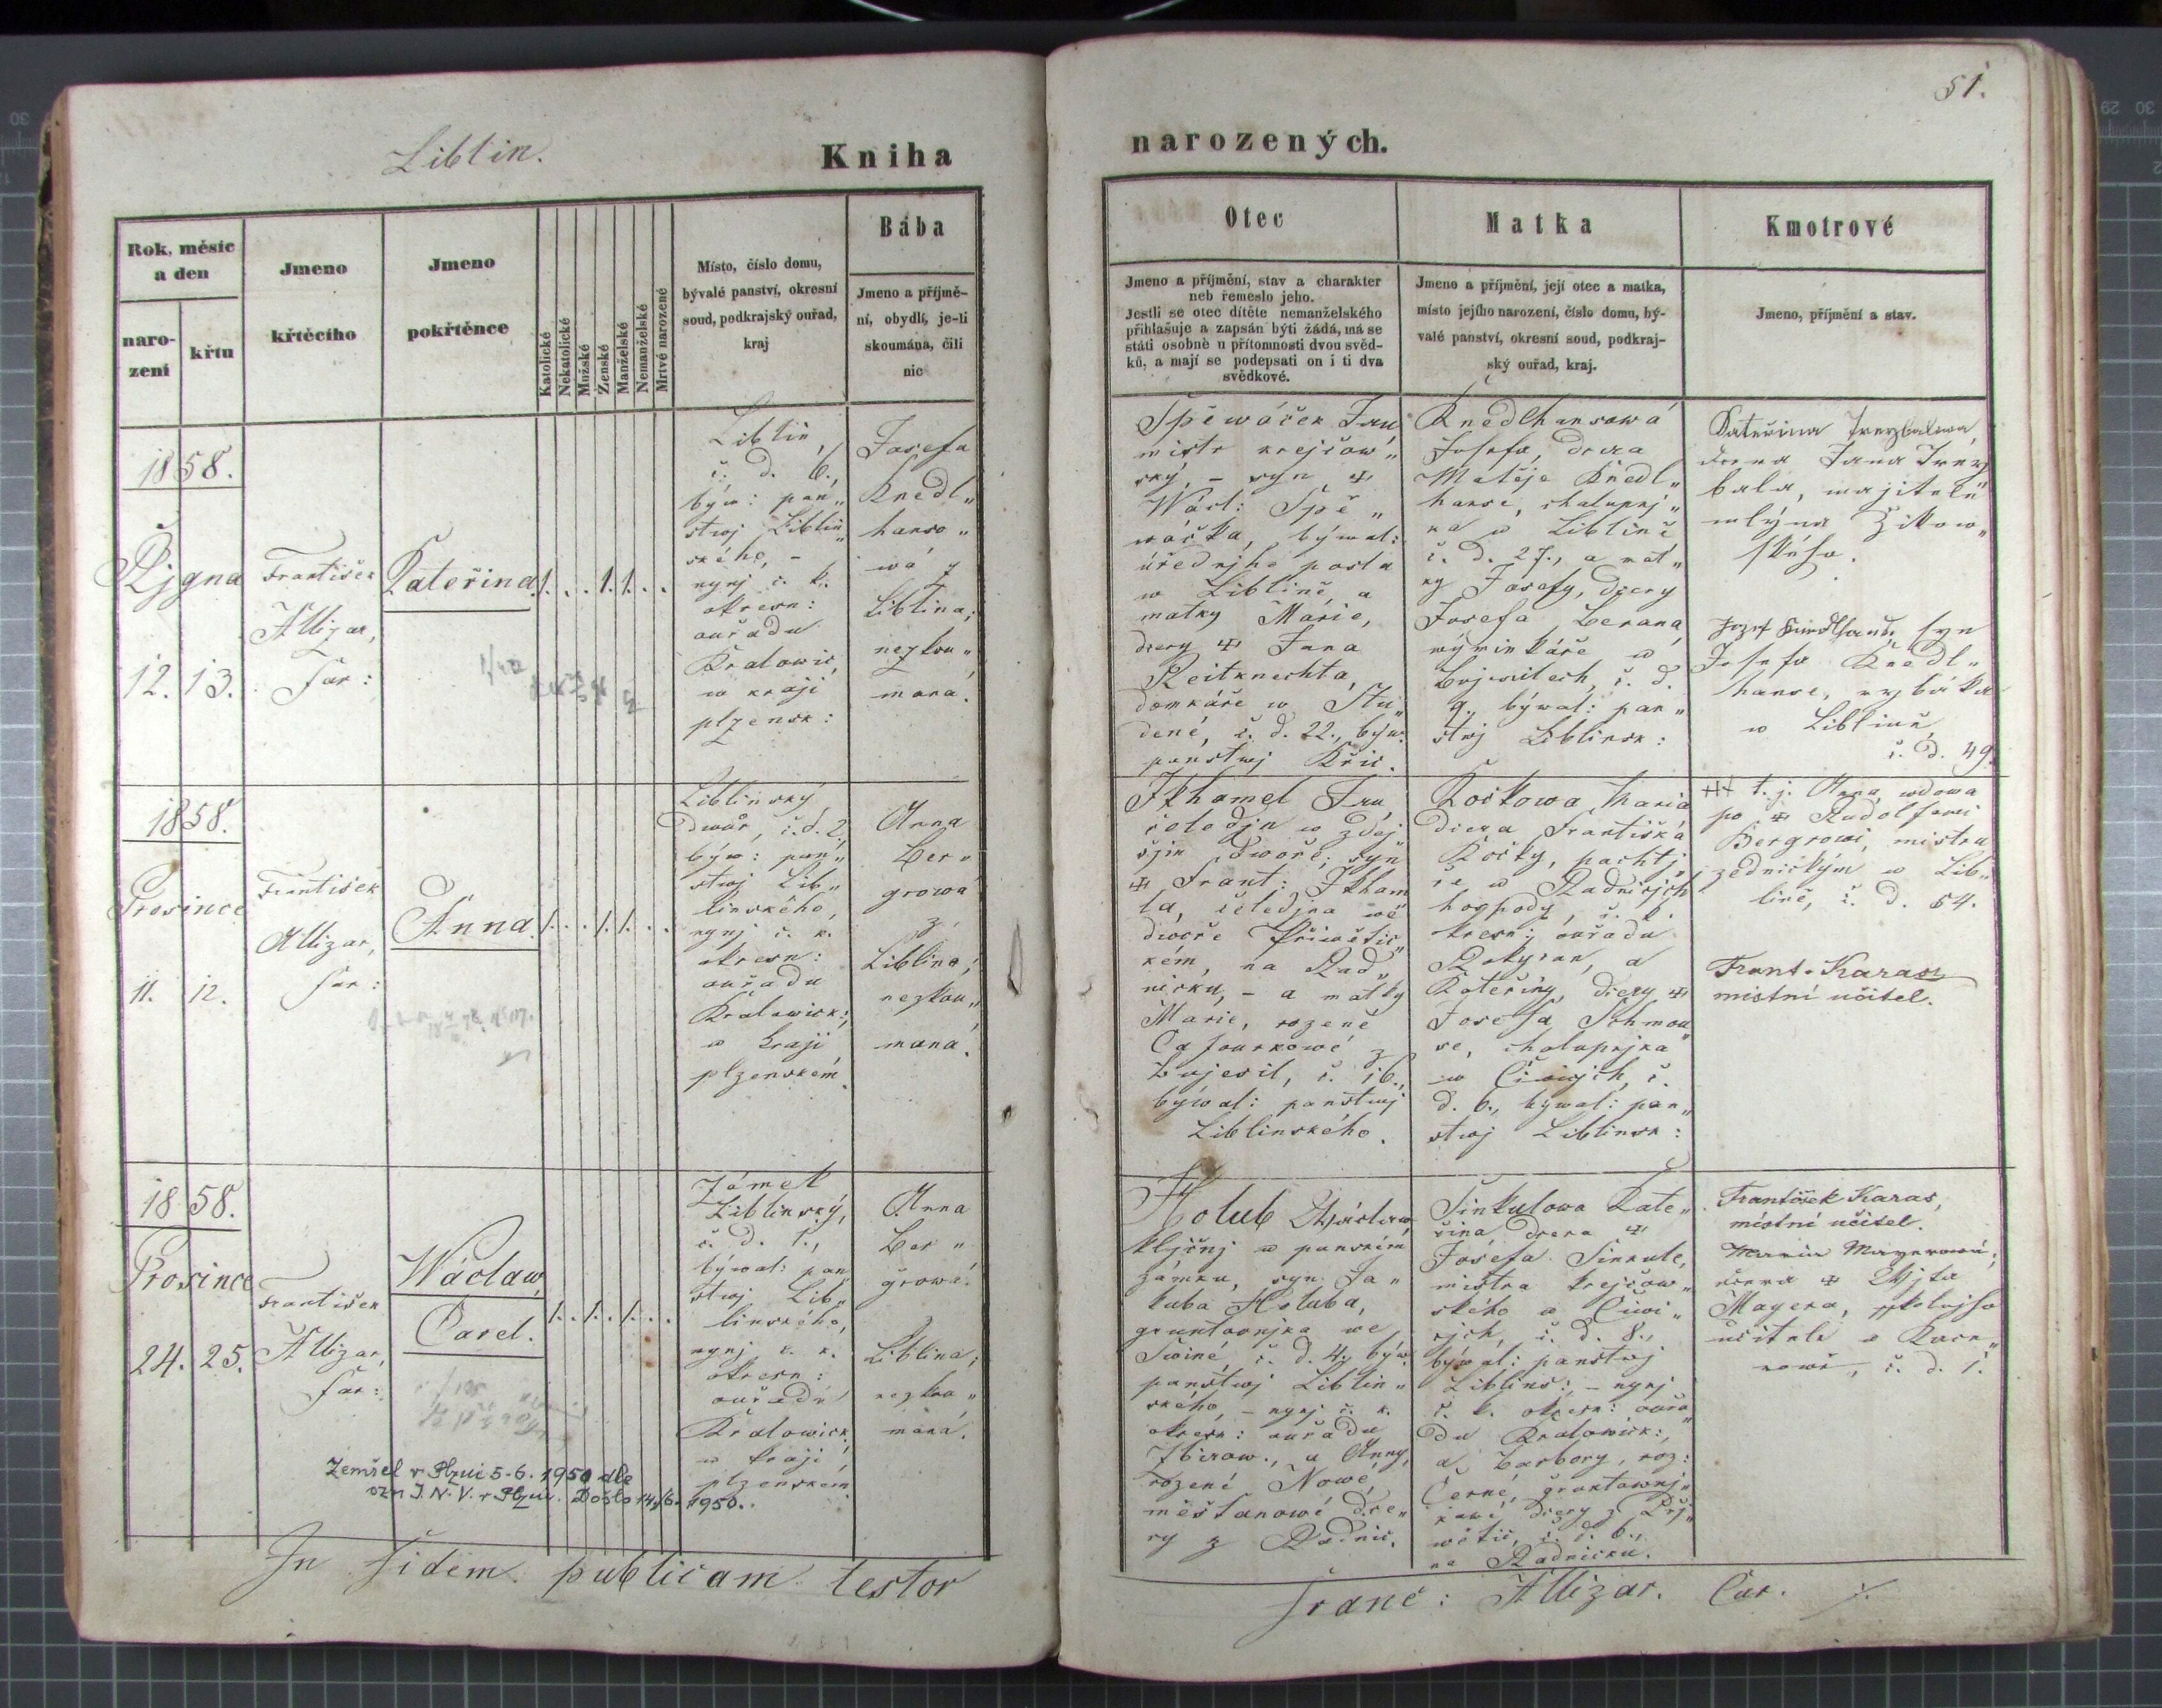 51.
Liblin.
Kniha
narozených.
Rok, měsíc
a den
naro-
zení
křtu
Jmeno
křtěcího
Jmeno
pokřtěnce
Katolické
Nekatolické
Mužské
Ženské
Manželské
Nemanželské
Mrtvě narozené
Místo, číslo domu,
bývalé panství, okresní
soud, podkrajský ouřad,
kraj
Bába
Jmeno a příjmě-
ní, obydlí, je-li
skoumána, čili
nic
Otec
Jmeno a příjmění, stav a charakter
neb řemeslo jeho.
Jestli se otec dítěte nemanželského
přihlašuje a zapsán býti žádá, má se
státi osobně u přítomnosti dvou svěd-
ků, a mají se podepsati on i ti dva
svědkové.
Matka
Jmeno a příjmění, její otec a matka,
místo jejího narození, číslo domu, bý-
valé panství, okresní soud, podkraj-
ský ouřad, kraj.
Kmotrové
Jmeno, příjmění a stav.
1858.
Řjgna
12. 13.
František
Allizar,
far:
Kateřina
1. . . 1. 1. . .
Liblin,
č. d. 6.,
býw: pan„
stwj Liblin„
ského, –
nynj c. k.
okresn:
ouřadu
Kralowic,
w kraji
plzensk:
Josefa
Knedl„
hanso„
wá z
Liblina;
nezkou„
mana.
Spěwáček Jan,
mistr krejčow„
ský, – syn
Wácl: Spě„
wáčka, býwal:
úřednjho posla
w Liblině, a
matky Marie,
dcery Jana
Reitknechta,
domkáře w Stu„
dené, č. d. 22., býw.
panstwj Křic.
Knedlhansowá
Josefa, dcera
Matěje Knedl„
hanse, chalupnj„
ka w Liblině
č. d. 27., a mat„
ky Josefy, dcery
Josefa Berana,
wýminkáře w
Bujesilech, č. d.
9., býwal: pan„
stwj Liblinsk:
Kateřina
dcera Jana
bala, majitele
mlýna Žikow„
ského.
syn
Josefa Knedl„
hanse, rybáka
w Liblině,
č. d. 49.
1858.
Prosince
11. 12.
František
Allizar,
far:
Anna
1. . . 1. 1. . .
Liblinský
Dwůr, č. d. 2,
býw: pan„
stwj Lib„
linského,
nynj c. k.
okresn:
ouřadu
Kralowick:,
w kraji
plzenském.
Anna
Ber„
growá
z
Liblina;
nezkou„
mana.
Jkhamel Jan,
čeledjn w zdej„
šjm dwoře; syn
Frant: Jkham„
la, čeledjna we
dwoře Přiwětic„
kém, na Rad„
nicku, – a matky
Marie, rozené
Cafourkowé z
Bujesil, č. 16.,
býwal: panstwj
Liblinského.
Kočkowa Maria
dcera Františka
Kočky, pachtý„
ře w Radnicjch
hospody, c. k.
okresn: ouřadu
Rokycan, a
Kateřiny, dcery
Josefa Schmau„
se, chalupnjka
w Čiwicjch, č.
d. 6., býwal: pan„
stwj Liblinsk:
t. j. Anna, wdowa
po Rudolfowi
Bergrowi, mistru
zednickým w Lib„
lině, č. d. 54.
Frant. Karas
mistní učitel.
1858.
Prosince
24. 25.
František
Allizar,
far:
Wáclaw,
Carel.
1. . 1. . 1. . .
Zámek
Liblinský,
č. d. 1.,
býwal: pan„
stwj Lib„
linského,
nynj c. k.
okresn:
ouřadu
Kralowick.,
w kraji
plzenském.
Anna
Ber„
growá.
Liblina;
nezkou„
maná.
Holub Wáclaw,
kljčnj w panském
zámku, syn Ja„
kuba Holuba,
gruntownjka we
Swiné, č. d. 4., býw.
panstwj Liblin„
ského, – nynj c. k.
okresn: ouřadu
Zbirow., a Anny,
rozené Nowé,
měšťanowé dce„
ry z Radnic.
Sinkulowa Kate„
řina dcera
Josefa Sinkule,
mistra krejčow„
ského w Čiwi„
cjch, č. d. 8.,
býwal: panstwj
Liblins: – nynj
c. k. okresn: ouřa„
du Kralowick:,
a Barbory, roz:
Černé, gruntownj„
kowé dcery z Přj„
wětic, č. d. 6.,
na Radnicku.
František Karas,
místní učitel.
Maria Mayerowá,
dcera Wjta
Mayera, školnjho
učitele w Kace„
rowě, č. d. 1.
Zemřel v Plzni 5.6. 1950 dle
ozn J. N. V. v Plzni. Došlo 14./6. 1950.
In fidem publicam testor
Franc: Allizar. Cur.